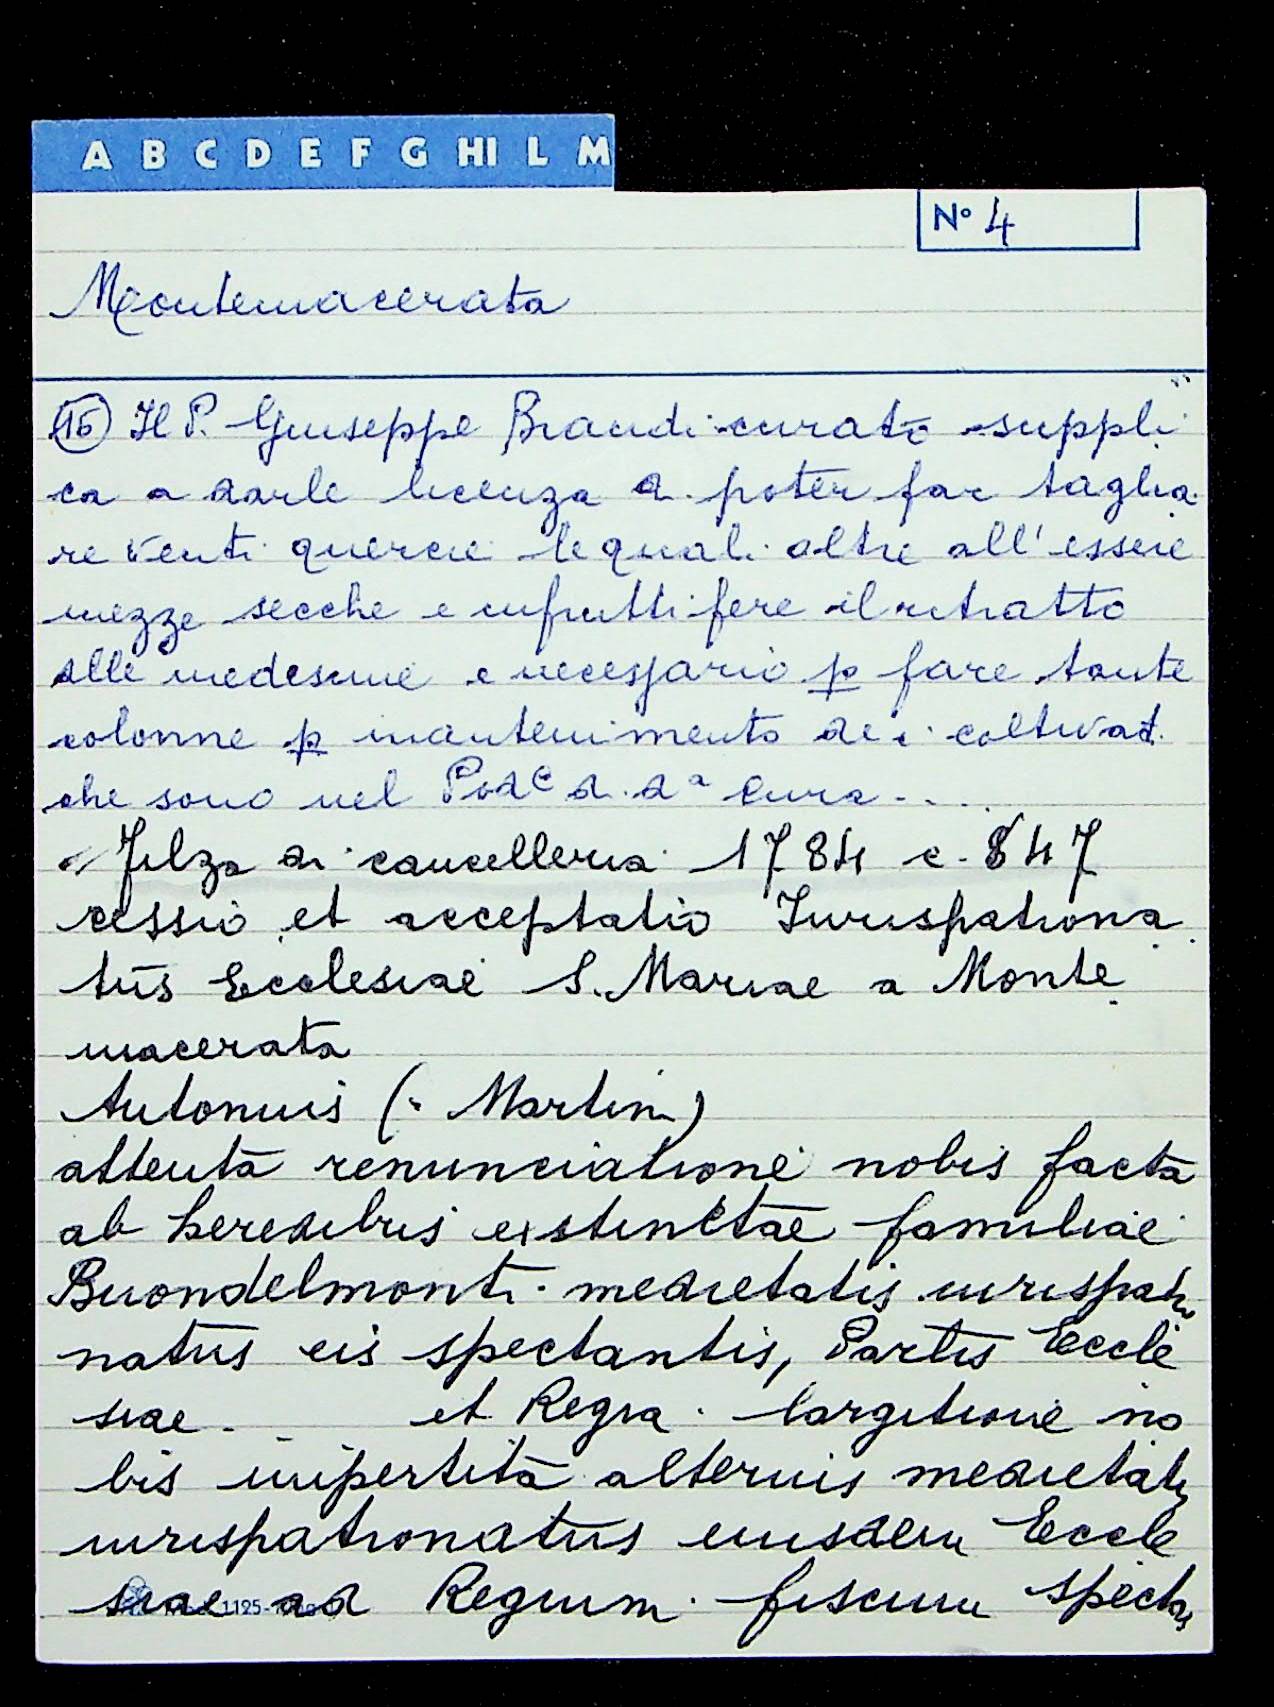 A B C D E F G HI L M
N° 4
Montemacerata
(16) Il P. Giuseppe Brandi curato suppli
ca a darle licenza di poter far taglia
re venti quercie le quali oltre all'essere
mezze secche e infruttifere il ritratto
alle medesime e necessario p fare tante
colonne p mantenimento dei coltivat.
che sono nel Pod.e d. d.a Cura....
Filza di cancelleria 1784 c. 847
cessio et acceptatio Jurispatrona
tus Ecclesiae S. Mariae a Monte
macerata
Antonius (: Martini)
attenta renunciatione nobis facta
ab heredibus extinctae familiae
Buondelmonti medietatis iurispatro
natus eis spectantis, Partis Eccle
siae... et Regia largitione no
bis impertita alternis medietatis
iurispatronatus eiusdem Eccle
siae ad Regium fiscum specta
1125-